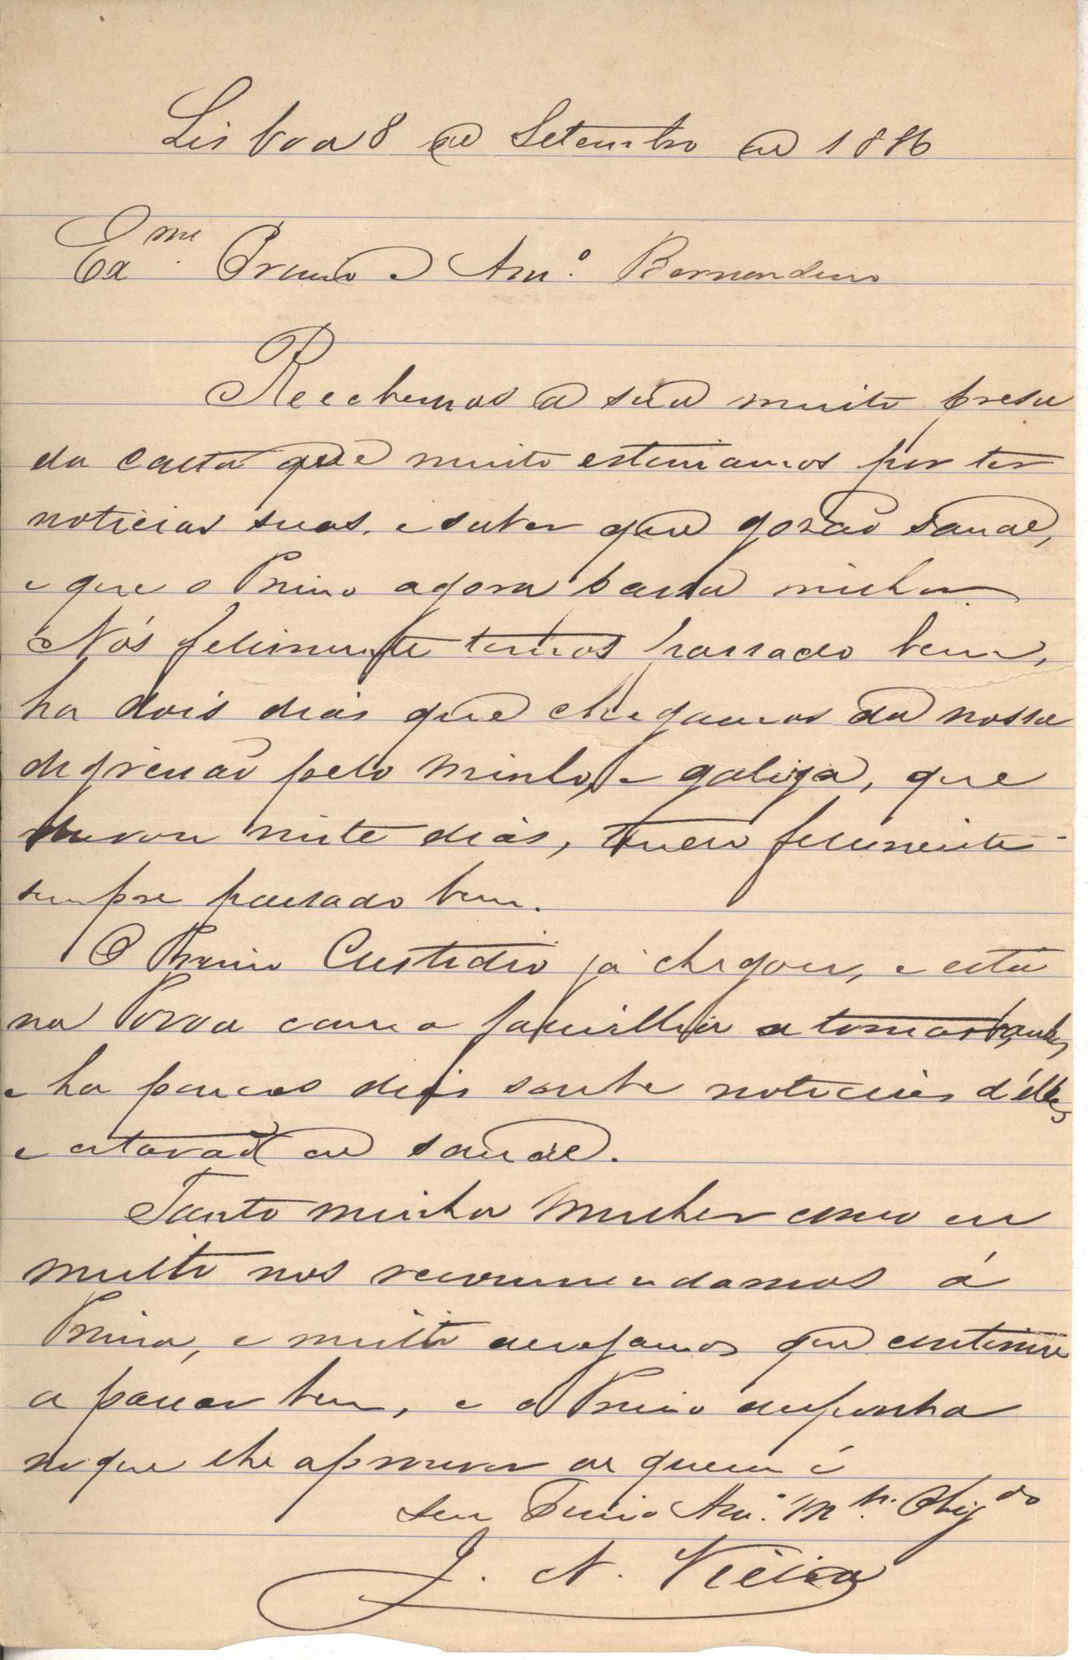 Lisboa 8 de Setembro de 1886
Exmo Primo e Amo. Bernardino
Recebemos a sua muito presa
da carta que muito estimamos por ter
noticias suas, e saber que gozão saude,
e que o Primo agora passa milhor
Nós felismente temos passado bem,
ha dois dias que chegamos da nossa
digreção pelo Minho, e galiza, que
durou vinte dias, tendo felismente
sempre passado bem.
O Primo Custodio já chegou, e está
na Povoa com a familhia a tomar banhos,
e ha poucos dias soube noticias d'élles
e estavão de saude.
Tanto minha mulher como eu
muito nos recomendamos á
Prima, e muito desejamos que continue
a passar bem, e o Primo disponha
no que lhe aprouver de quem é
Seu Primo Amo. Mto. Obrigdo
J. N. Vieira